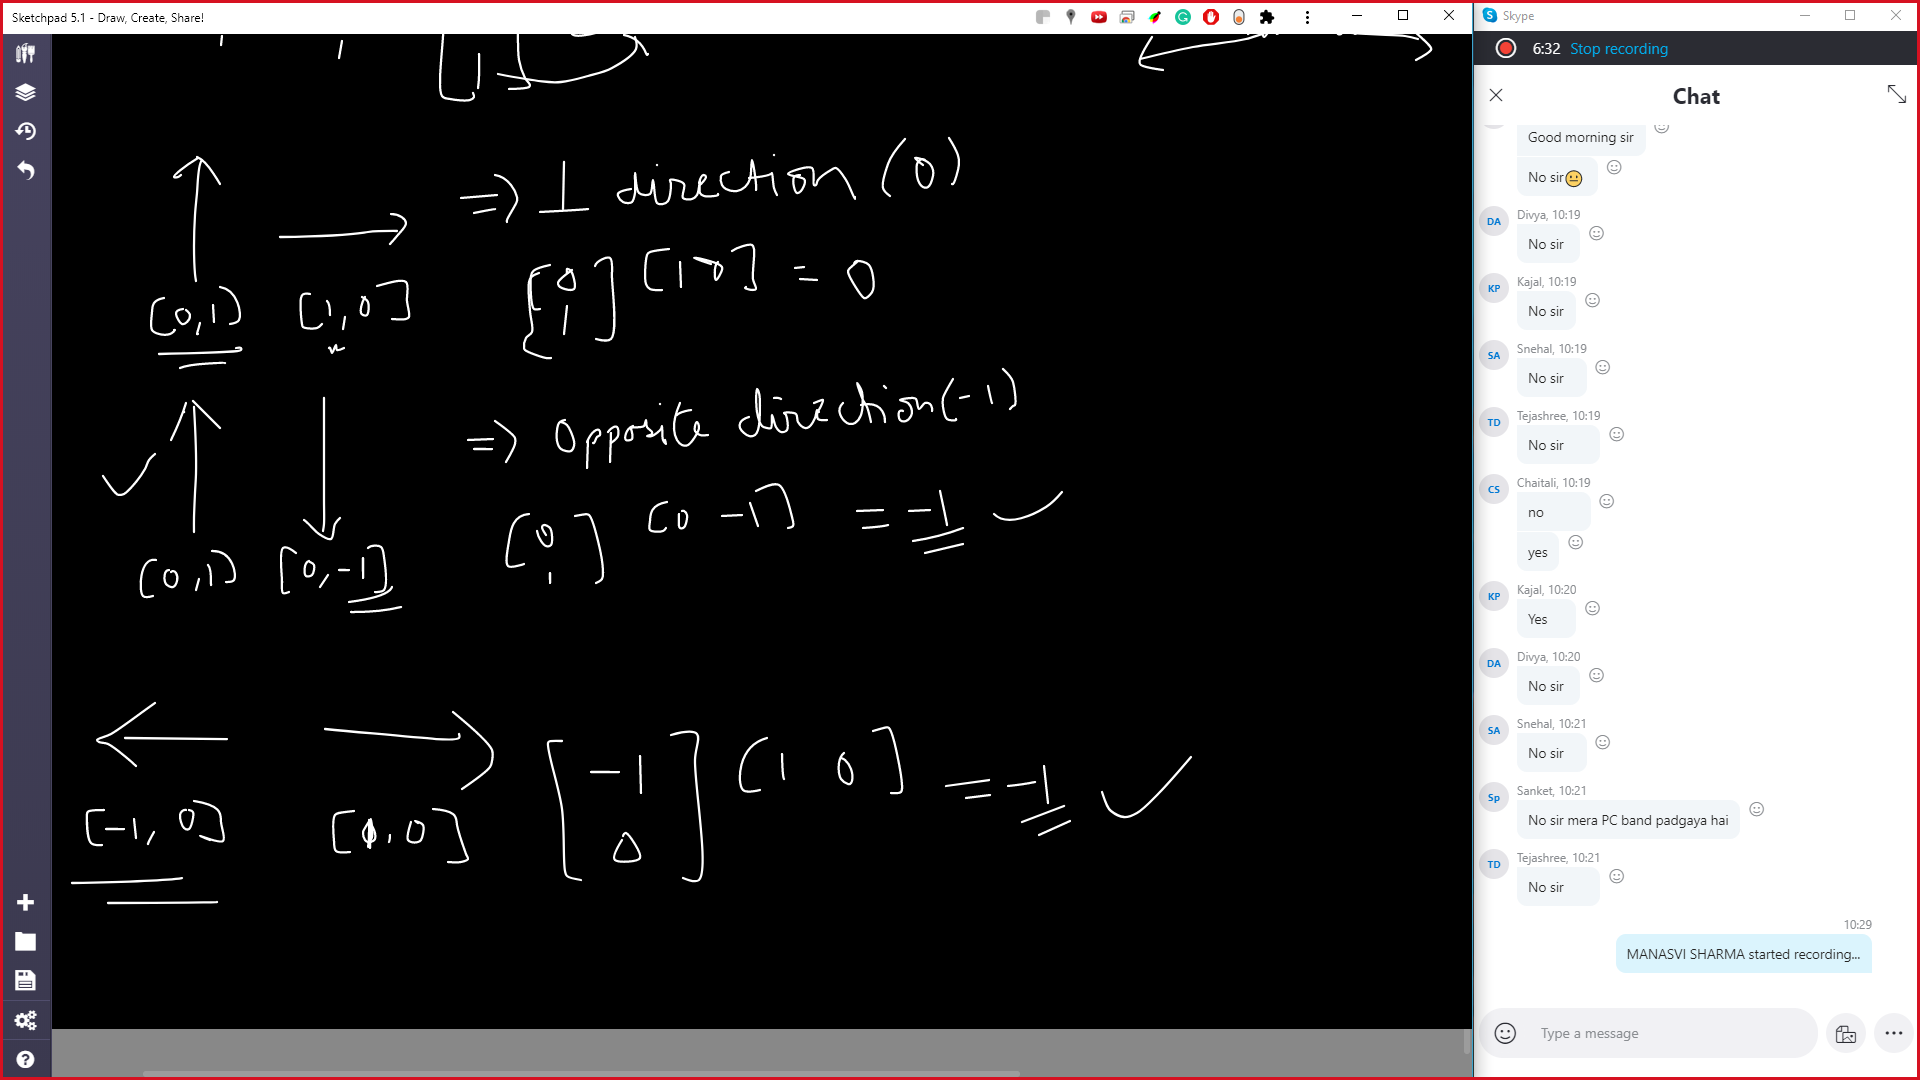 Sketchpad 5.1 - Draw, Create, Share!
⇒ ⊥ direction (0)
[0,1) [1,0]
[0 1] [1 0] = 0
⇒ Opposite direction (-1)
[0,1) [0,-1]
[0 1] [0 -1] = -1 ✓
[-1, 0] [1,0]
[-1 0] [1 0] = -1 ✓
Skype
6:32 Stop recording
Chat
Good morning sir
No sir😐
DA Divya, 10:19
No sir
KP Kajal, 10:19
No sir
SA Snehal, 10:19
No sir
TD Tejashree, 10:19
No sir
CS Chaitali, 10:19
no
yes
KP Kajal, 10:20
Yes
DA Divya, 10:20
No sir
SA Snehal, 10:21
No sir
Sp Sanket, 10:21
No sir mera PC band padgaya hai
TD Tejashree, 10:21
No sir
10:29
MANASVI SHARMA started recording...
Type a message